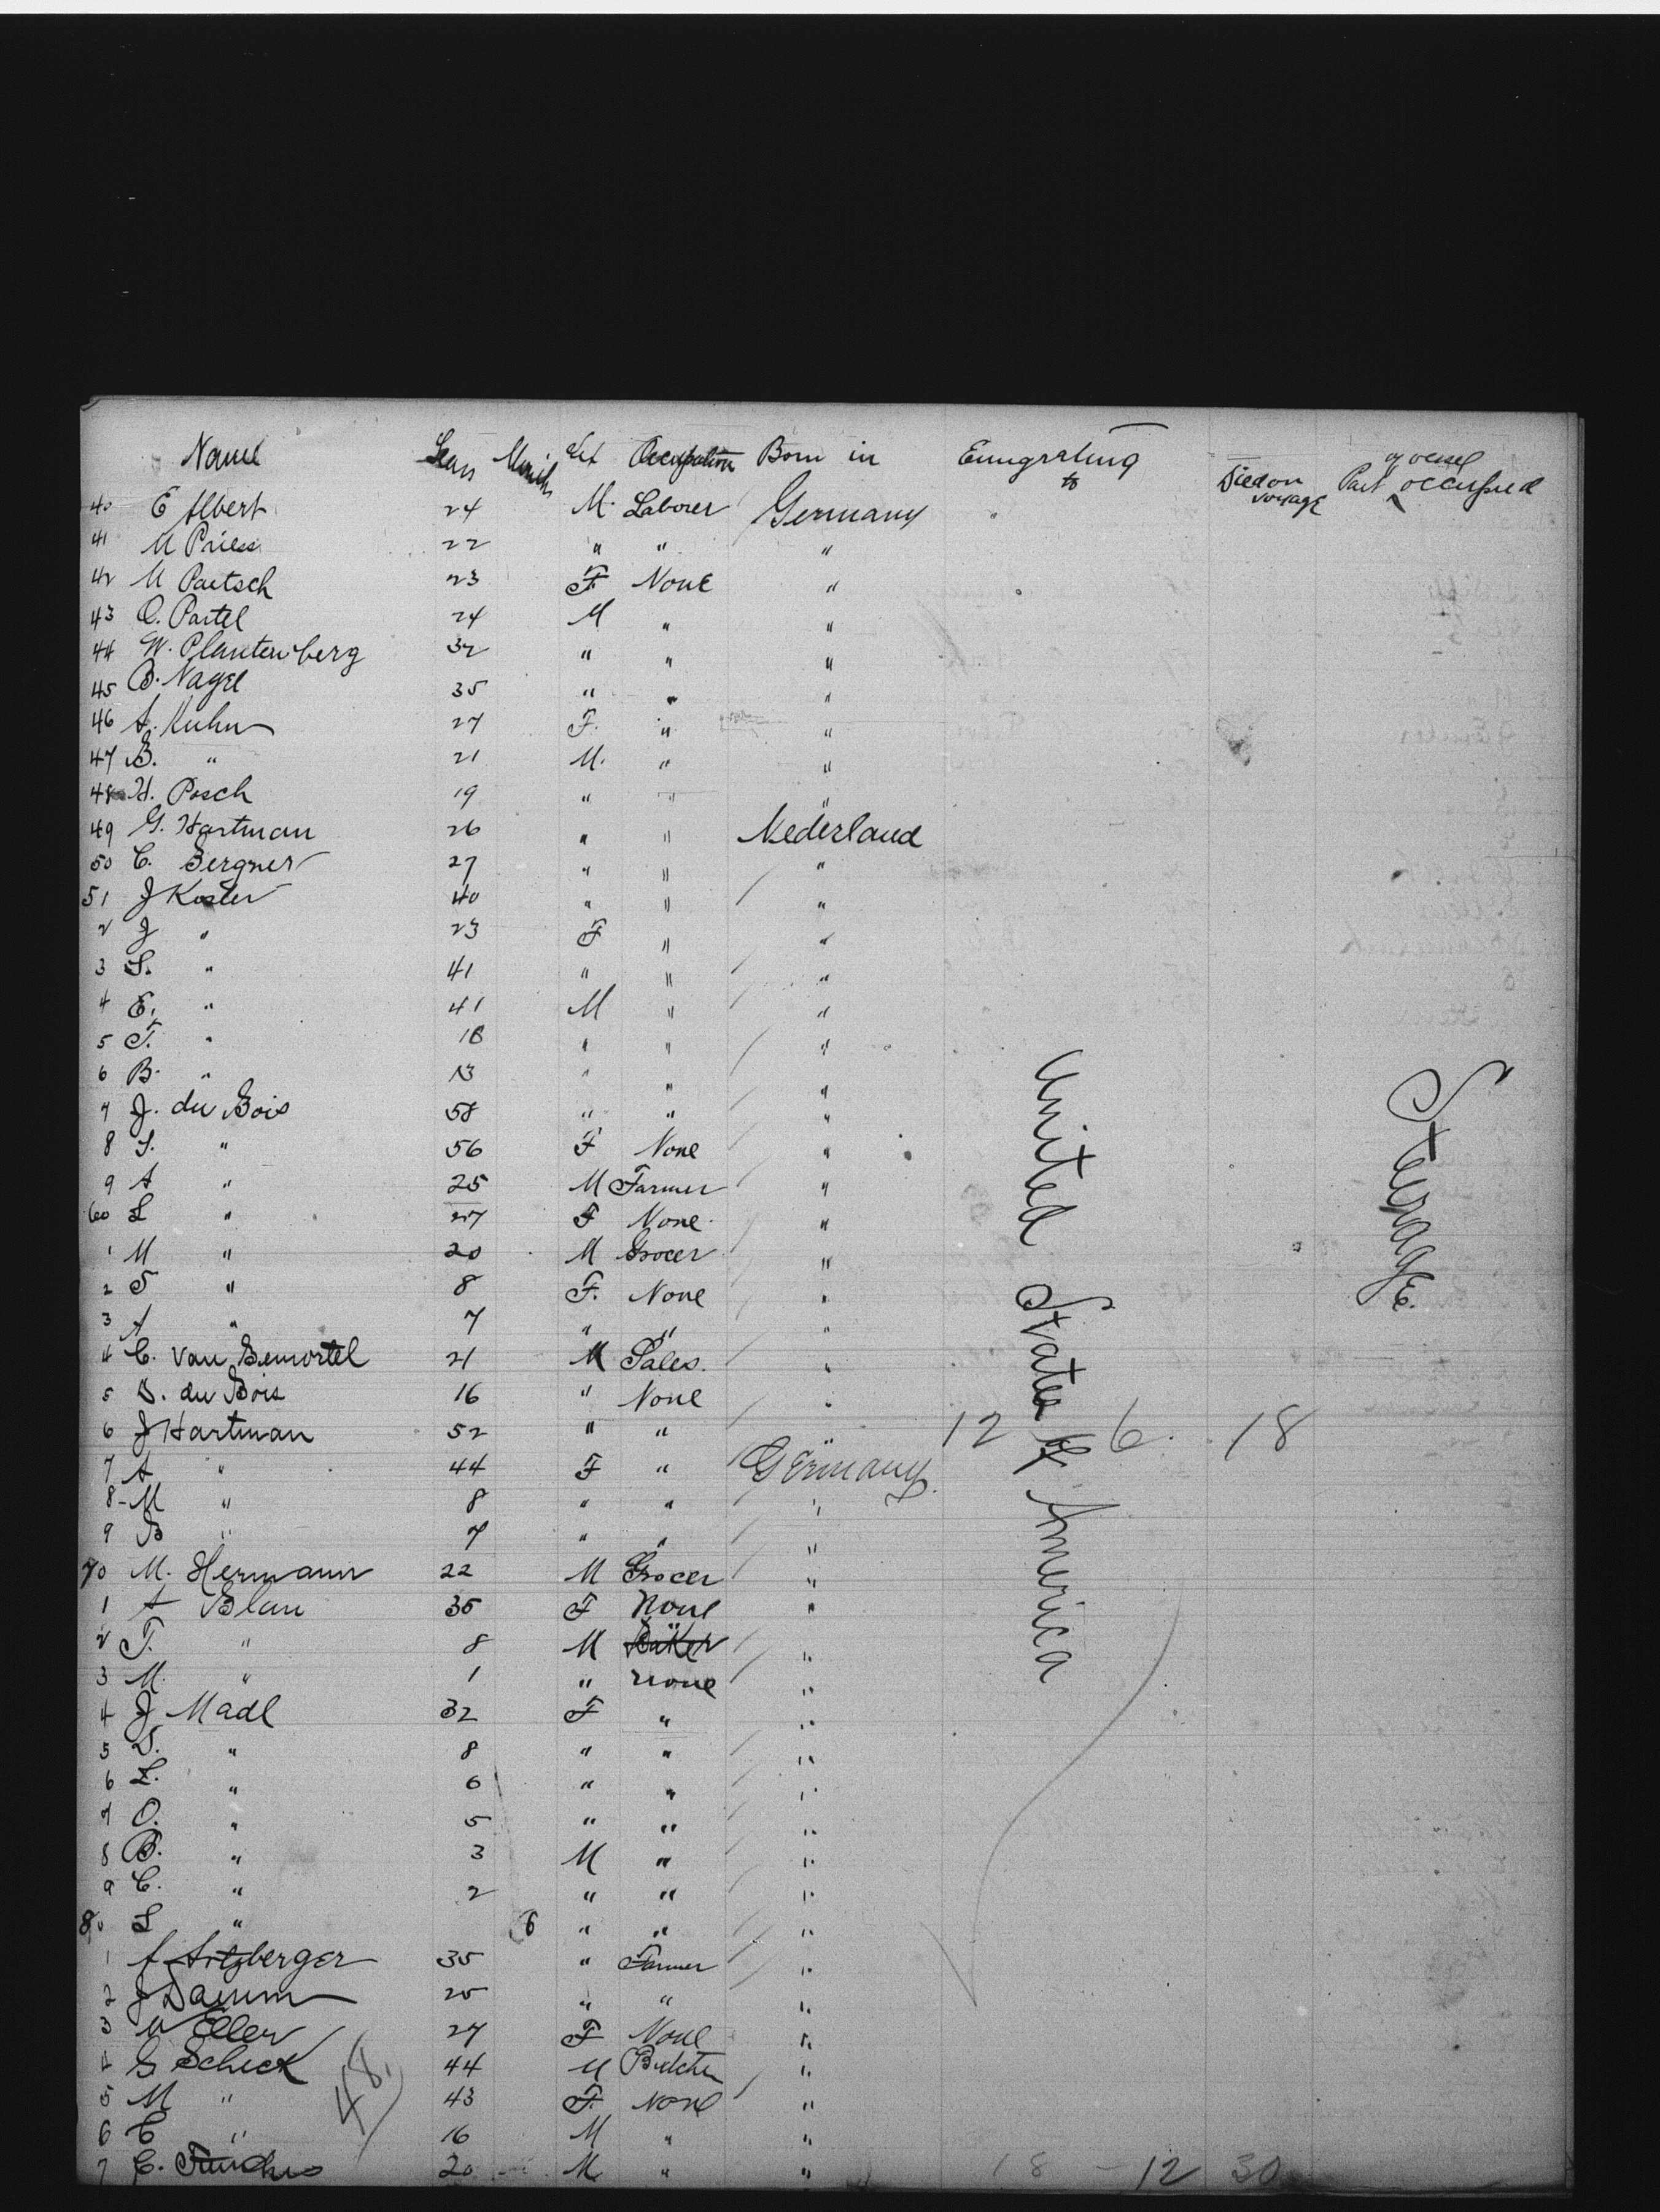 Name Years Months Sex Occupation Born in Emigrating to Died on voyage Part of vessel occupied
40 E Albert 24 M. Laborer Germany "
41 M Priess 22 " " "
42 M Paetsch 23 F. None "
43 O. Partel 24 M " "
44 W. Plantenberg 32 " " "
45 B. Nagel 35 " " "
46 A. Kuhn 27 F. " "
47 B. " 21 M. " "
48 H. Posch 19 " " "
49 G. Hartman 26 " " Nederland
50 C. Bergner 27 " " "
51 J Koster 40 " " "
2 J " 23 F " "
3 S. " 41 " " "
4 E. " 41 M " "
5 T. " 18 " " "
6 B. " 13 " " "
7 J. du Bois 58 " " "
8 S. " 56 F None "
9 A " 25 M Farmer "
60 L " 27 F None "
1 M " 20 M Grocer "
2 T " 8 F. None "
3 A " 7 " " "
4 C. van Bemortel 21 M Sales. "
5 D. du Bois 16 " None "
6 J Hartman 52 " " " 12 6 18
7 A " 44 F " Germany
8 M " 8 " " "
9 B " 7 " " "
70 M. Hermann 22 M Grocer "
1 A Blau 35 F None "
2 T. " 8 M Baker " "
3 M. " 1 " None "
4 J Madl 32 F " "
5 D. " 8 " " "
6 L. " 6 " " "
7 O. " 5 " " "
8 B. " 3 M " "
9 C. " 2 " " "
80 L " 6 " " "
1 A Sitzberger 35 " Farmer "
2 J Daumm 25 " " "
3 M Eller 27 F None "
4 G Scheck 44 M Butcher "
5 M " 43 F. None "
6 C " 16 M " "
7 C. 20 M " " 18 - 12 30
48.
United States of America
Steerage.